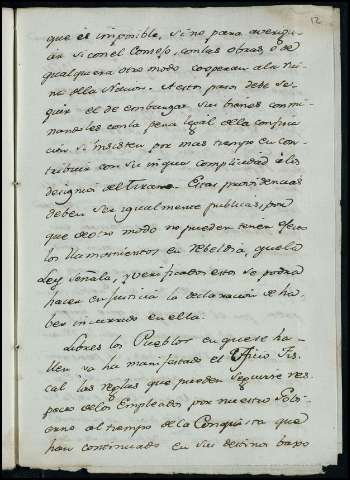 12
que es imposible, si no para averigu-
ar si con el Consejo, con las obras, o de
qualquiera otro modo cooperan a la rui-
na de la Nacion. A este paso debe se-
guir el de embargar sus bienes conmi-
nandoles con la pena legal de la confisca-
cion si insisten por mas tiempo en con-
tribuir con su iniqua complicidad à los
designios del Tirano. Estas providencias
deben ser igualmente publicas, por
que de otro modo no pueden tener efecto
los llamamientos en rebeldia, que la
Ley señala, y verificados estos se podra
hacer en justicia la declaracion de ha-
ber incurrido en ella.
Libres los Pueblos en que se ha-
llen ya ha manifestado el Oficio Fis-
cal las reglas que pueden seguirse res-
pecto de los Empleados por nuestro Gobi-
erno al tiempo de la Conquista que
han continuado en sus destinos baxo